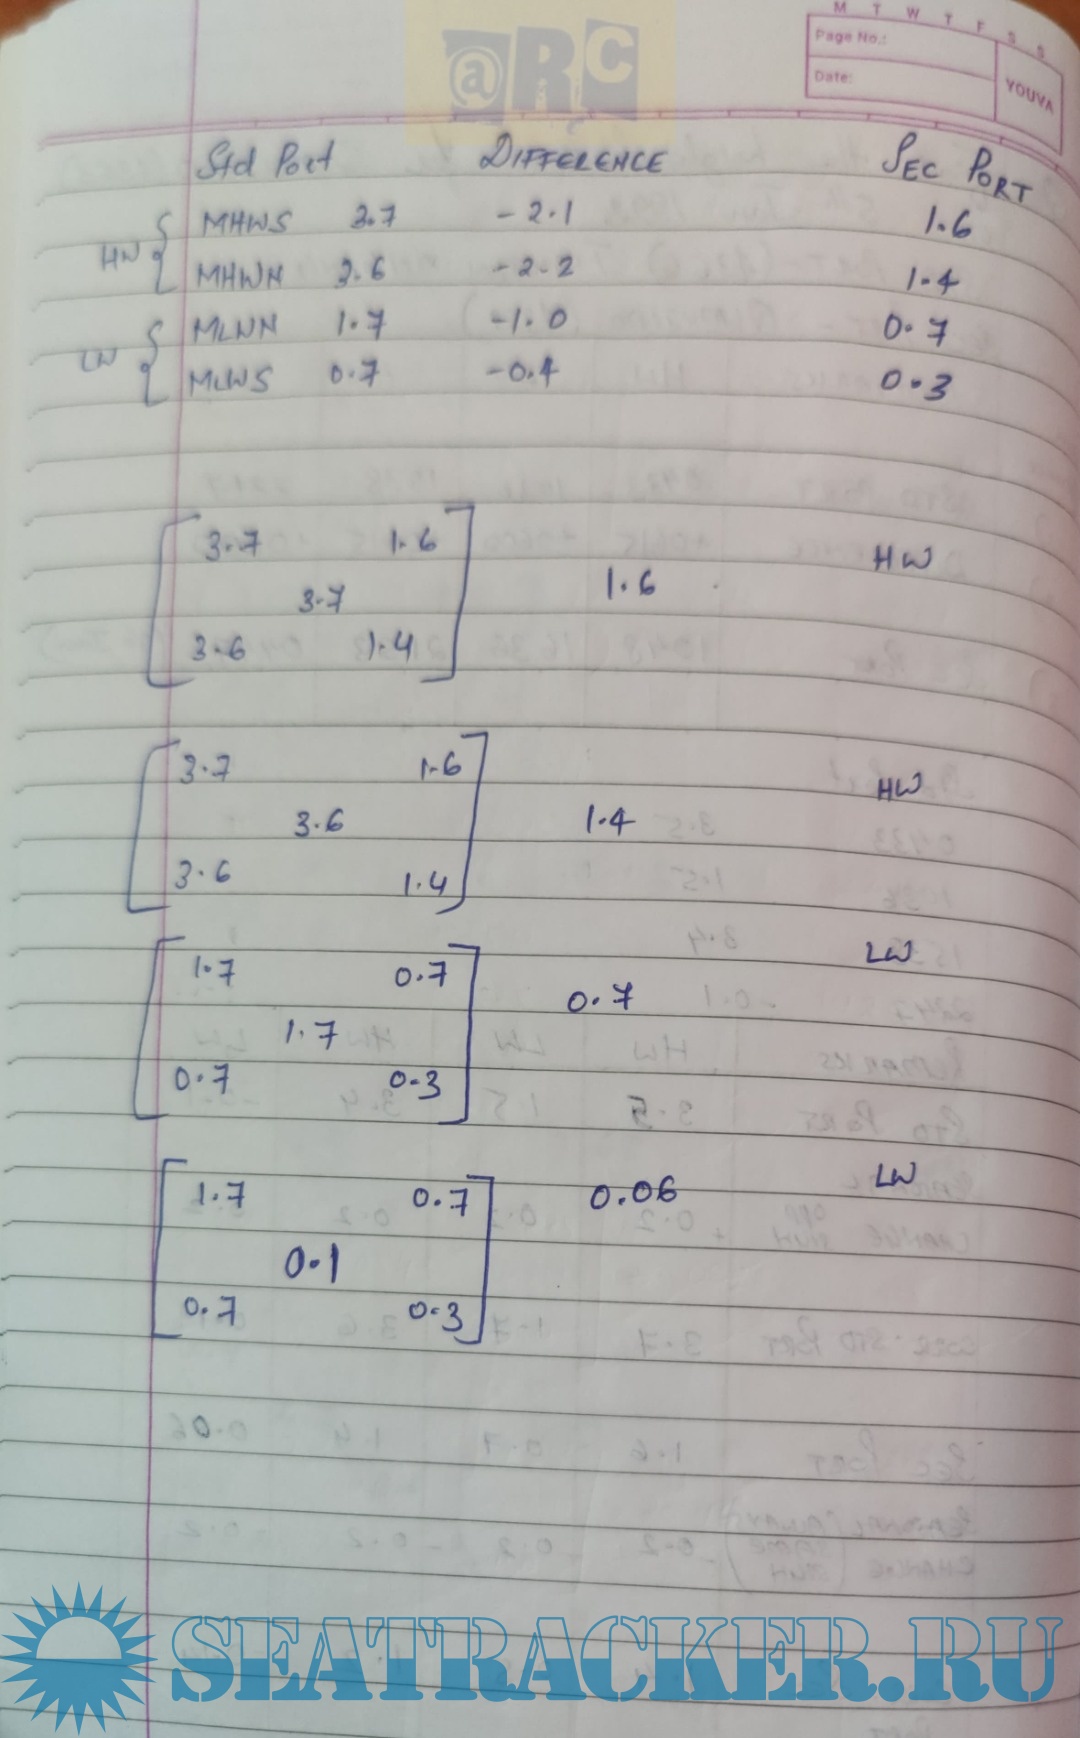 @RC
M T W T F S S
Page No.:
Date:
YOUVA
Std Port DIFFERENCE SEC PORT
HW { MHWS 3.7 -2.1 1.6
MHWN 3.6 -2.2 1.4
LW { MLWN 1.7 -1.0 0.7
MLWS 0.7 -0.4 0.3
3.7 1.6 HW
3.7 1.6
3.6 1.4
3.7 1.6 HW
3.6 1.4
3.6 1.4
1.7 0.7 LW
1.7 0.7
0.7 0.3
1.7 0.7 0.06 LW
0.1
0.7 0.3
SEATRACKER.RU